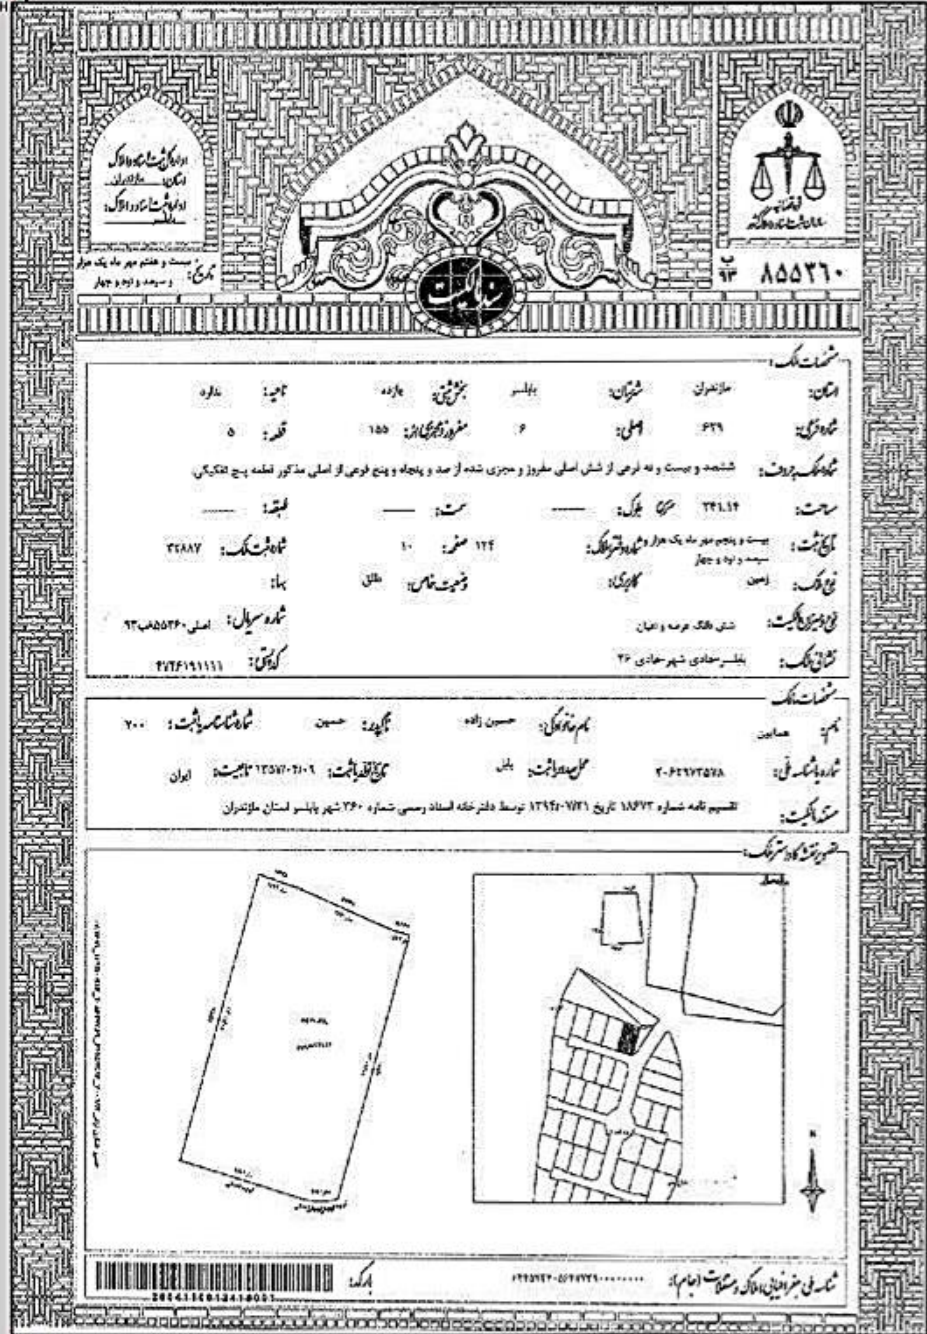 قوه قضائیه
سازمان ثبت اسناد و املاک کشور
اداره کل ثبت اسناد و املاک
استان: مازندران
اداره ثبت اسناد و املاک:
بابلسر
تاریخ: بیست و هفتم مهر ماه یک هزار و سیصد و نود و چهار
سند مالکیت
ب ۹۳ ۸۵۵۳۶۰
مشخصات ملک:
استان: مازندران شهرستان: بابلسر بخش ثبتی: یازده ناحیه: ندارد
شماره فرعی: ۶۲۹ اصلی: ۶ مفروز و مجزی از: ۱۵۵ قطعه: ۵
شماره ملک به حروف: ششصد و بیست و نه فرعی از شش اصلی مفروز و مجزی شده از صد و پنجاه و پنج فرعی از اصلی مذکور قطعه پنج تفکیکی
مساحت: ۲۴۱.۱۴ مترمربع بلوک: —— سمت: —— طبقه: ——
تاریخ ثبت: بیست و پنجم مهر ماه یک هزار و سیصد و نود و چهار شماره دفتر املاک: ۱۲۴ صفحه: ۱۰ شماره ثبت ملک: ۳۲۸۸۷
نوع ملک: زمین کاربری: وضعیت خاص: طلق بها:
نوع و میزان مالکیت: شش دانگ عرصه و اعیان شماره سریال: اصلی ۸۵۵۳۶۰ب۹۳
نشانی ملک: بابلسر-هادی شهر-هادی ۳۶ کد پستی: ۴۷۴۶۱۹۱۱۱۱
مشخصات مالک
نام: همایون نام خانوادگی: حسین زاده نام پدر: حسین شماره شناسنامه یا ثبت: ۲۰۰
شماره یا شناسه ملی: ۲۰۶۲۹۷۳۵۷۸ محل صدور یا ثبت: بابل تاریخ تولد یا ثبت: ۱۳۵۷/۰۴/۰۹ تابعیت: ایران
مستند مالکیت: تقسیم نامه شماره ۱۸۶۷۳ تاریخ ۱۳۹۴/۰۷/۲۱ توسط دفترخانه اسناد رسمی شماره ۳۶۰ شهر بابلسر استان مازندران
تصویر نقشه کاداستر ملک:
N
شناسه ملی جغرافیایی املاک و مستغلات (جام):
بارکد: